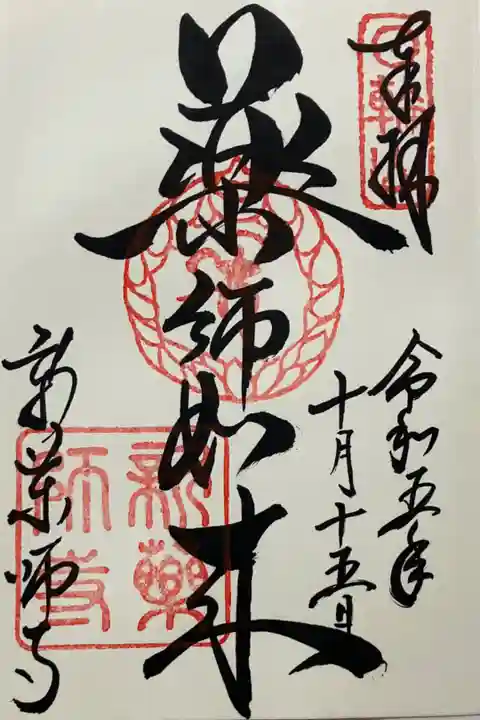 奉拝
令和五年
十月十五日
薬師如来
新薬師寺
新藥
師寺